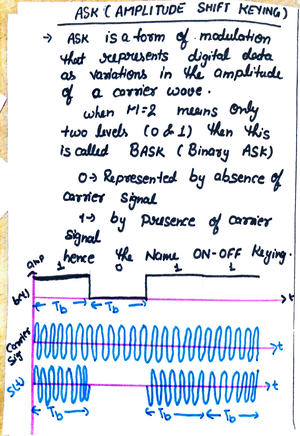 ASK (AMPLITUDE SHIFT KEYING)
→ ASK is a form of modulation
that represents digital data
as variations in the amplitude
of a carrier wave.
when M=2 means only
two levels (0 & 1) then this
is called BASK (Binary ASK)
0→ Represented by absence of
carrier signal
1→ by presence of carrier
signal
hence the Name ON-OFF Keying.
amp
1 0 1 1
b(t)
t
Tb Tb
Carrier
Sig
t
S(t)
t
Tb Tb Tb